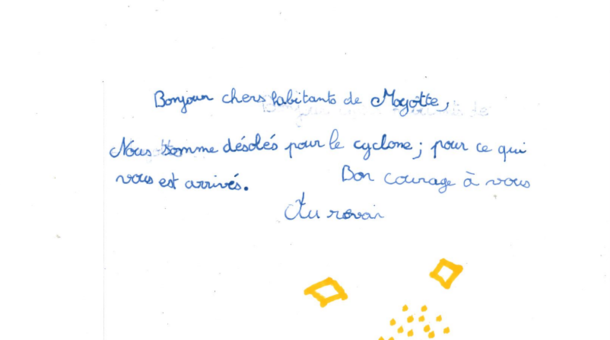 Bonjour chers habitants de Mayotte,
Nous somme désolés pour le cyclone; pour ce qui
vous est arrivés. Bon courage à vous
Au revoir